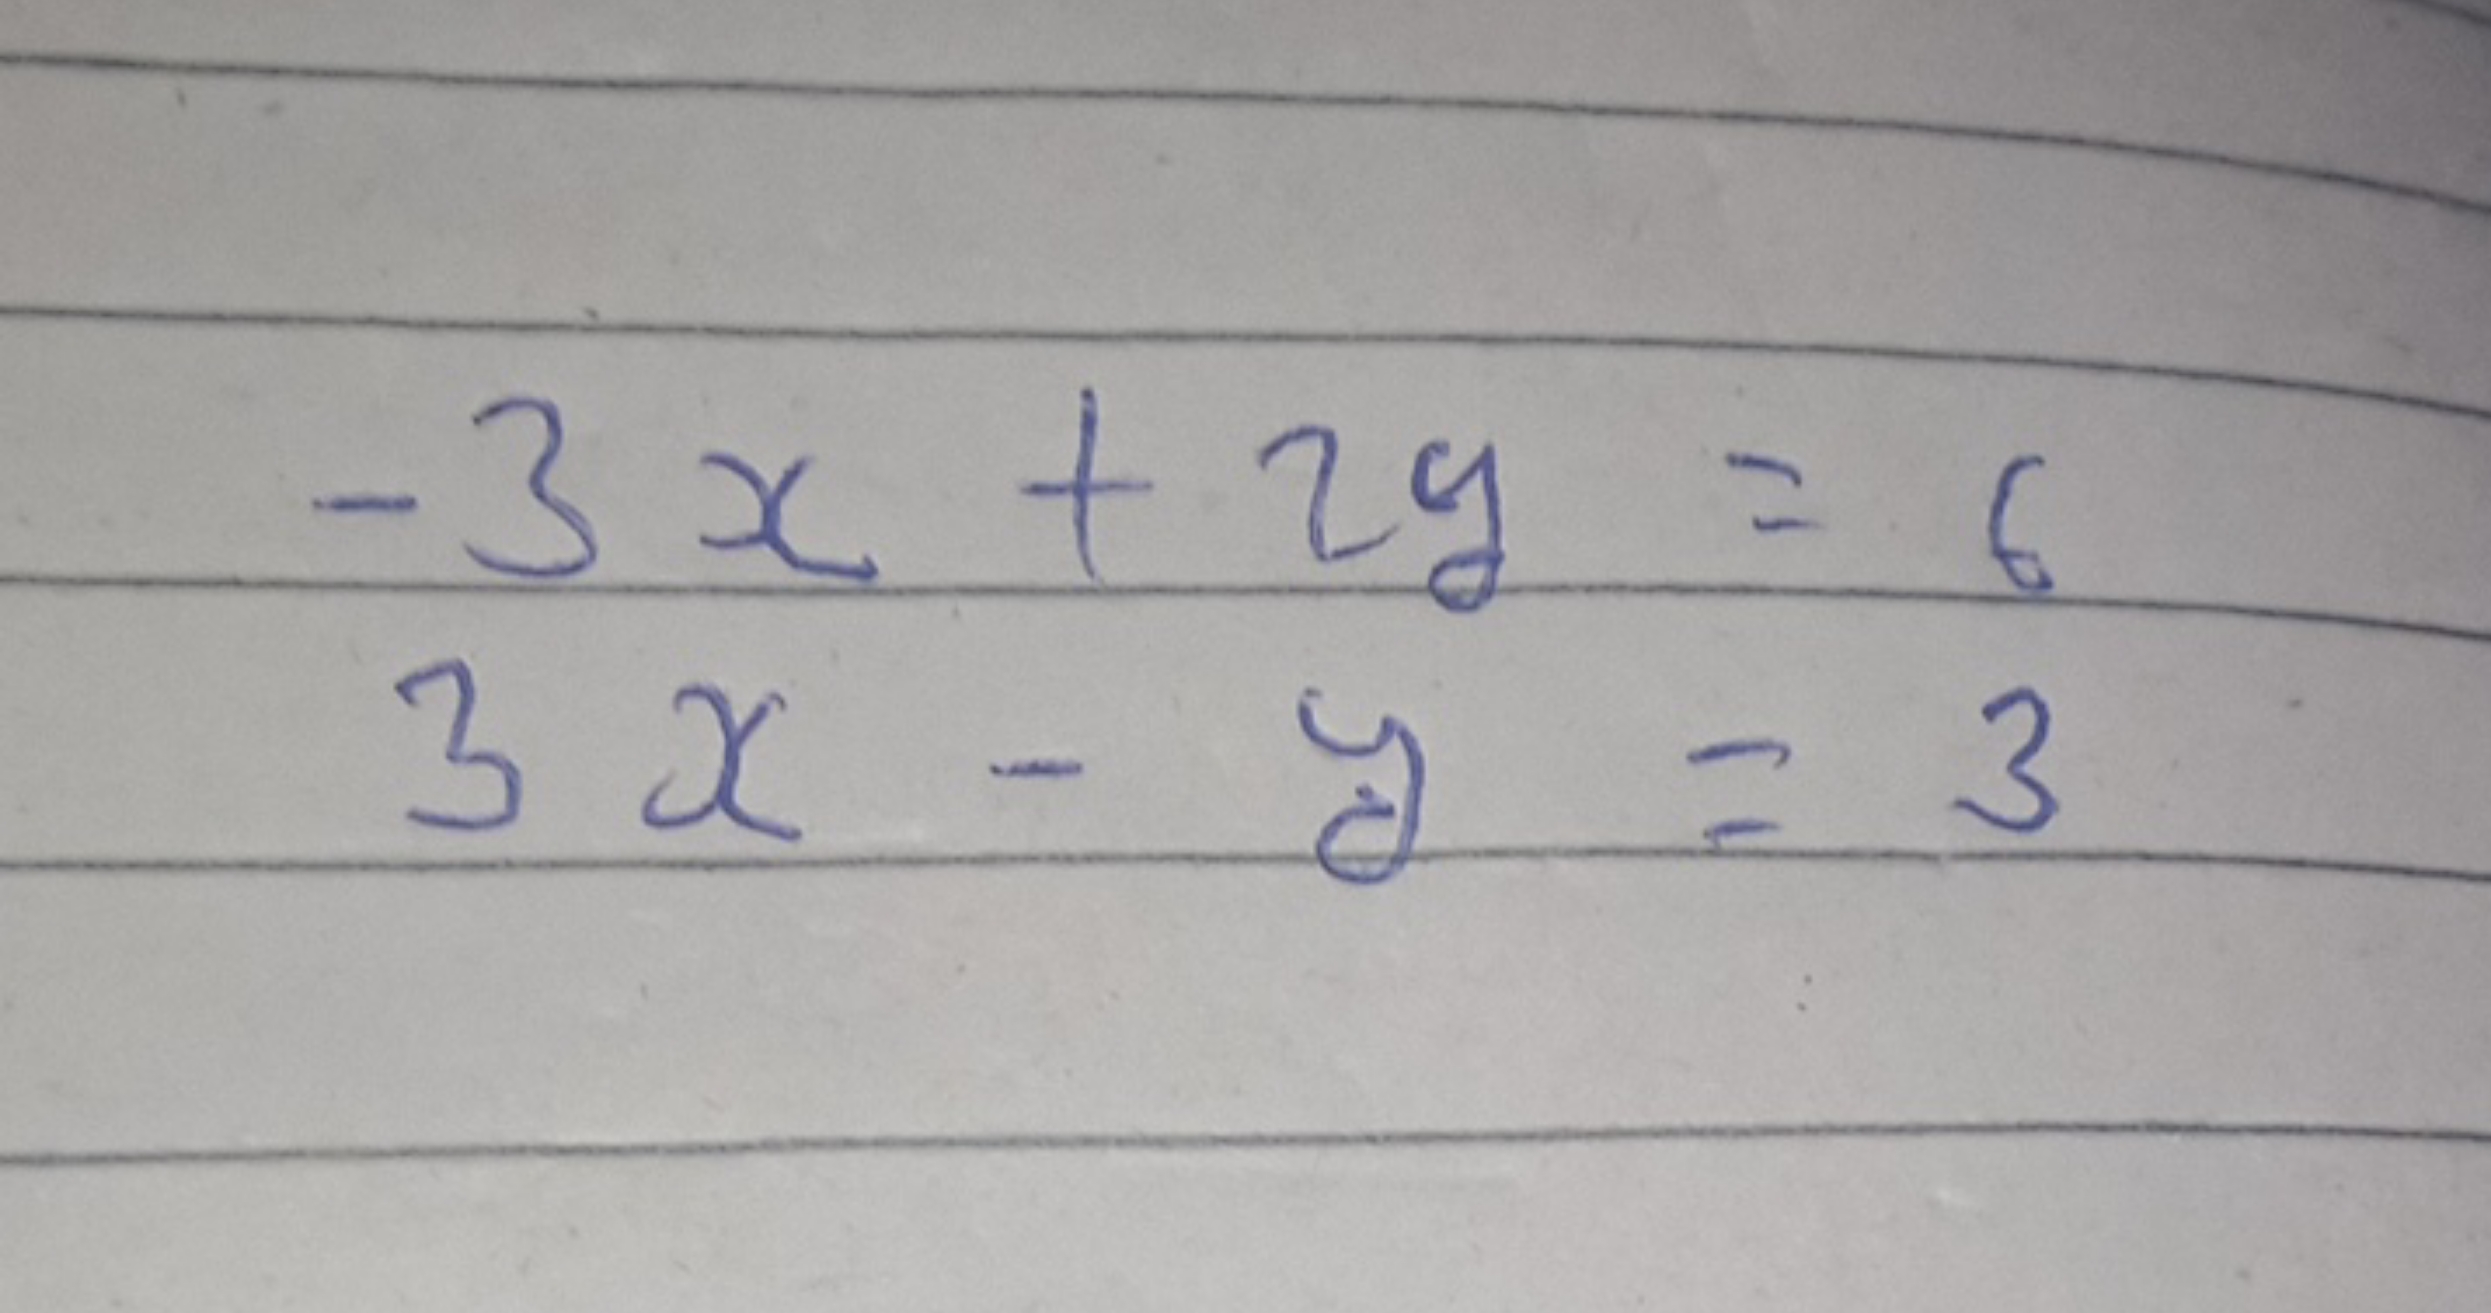 -3x + 2y = 6
3x - y = 3